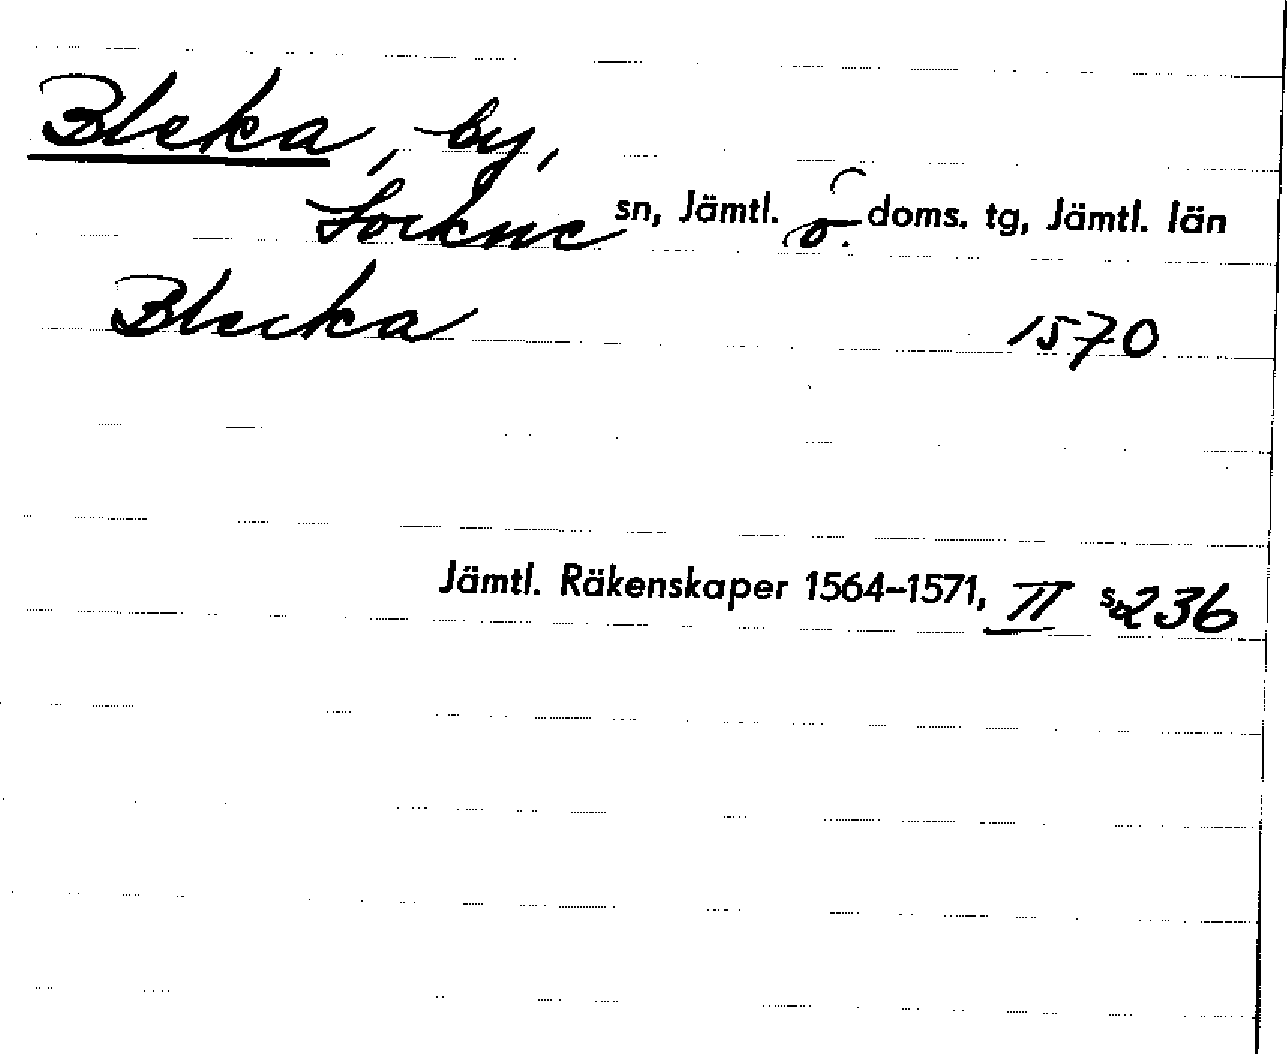 Bleka, by,
Lockne sn, Jämtl. ö. doms. tg, Jämtl. län
Blecka 1570
Jämtl. Räkenskaper 1564–1571, II s. 236